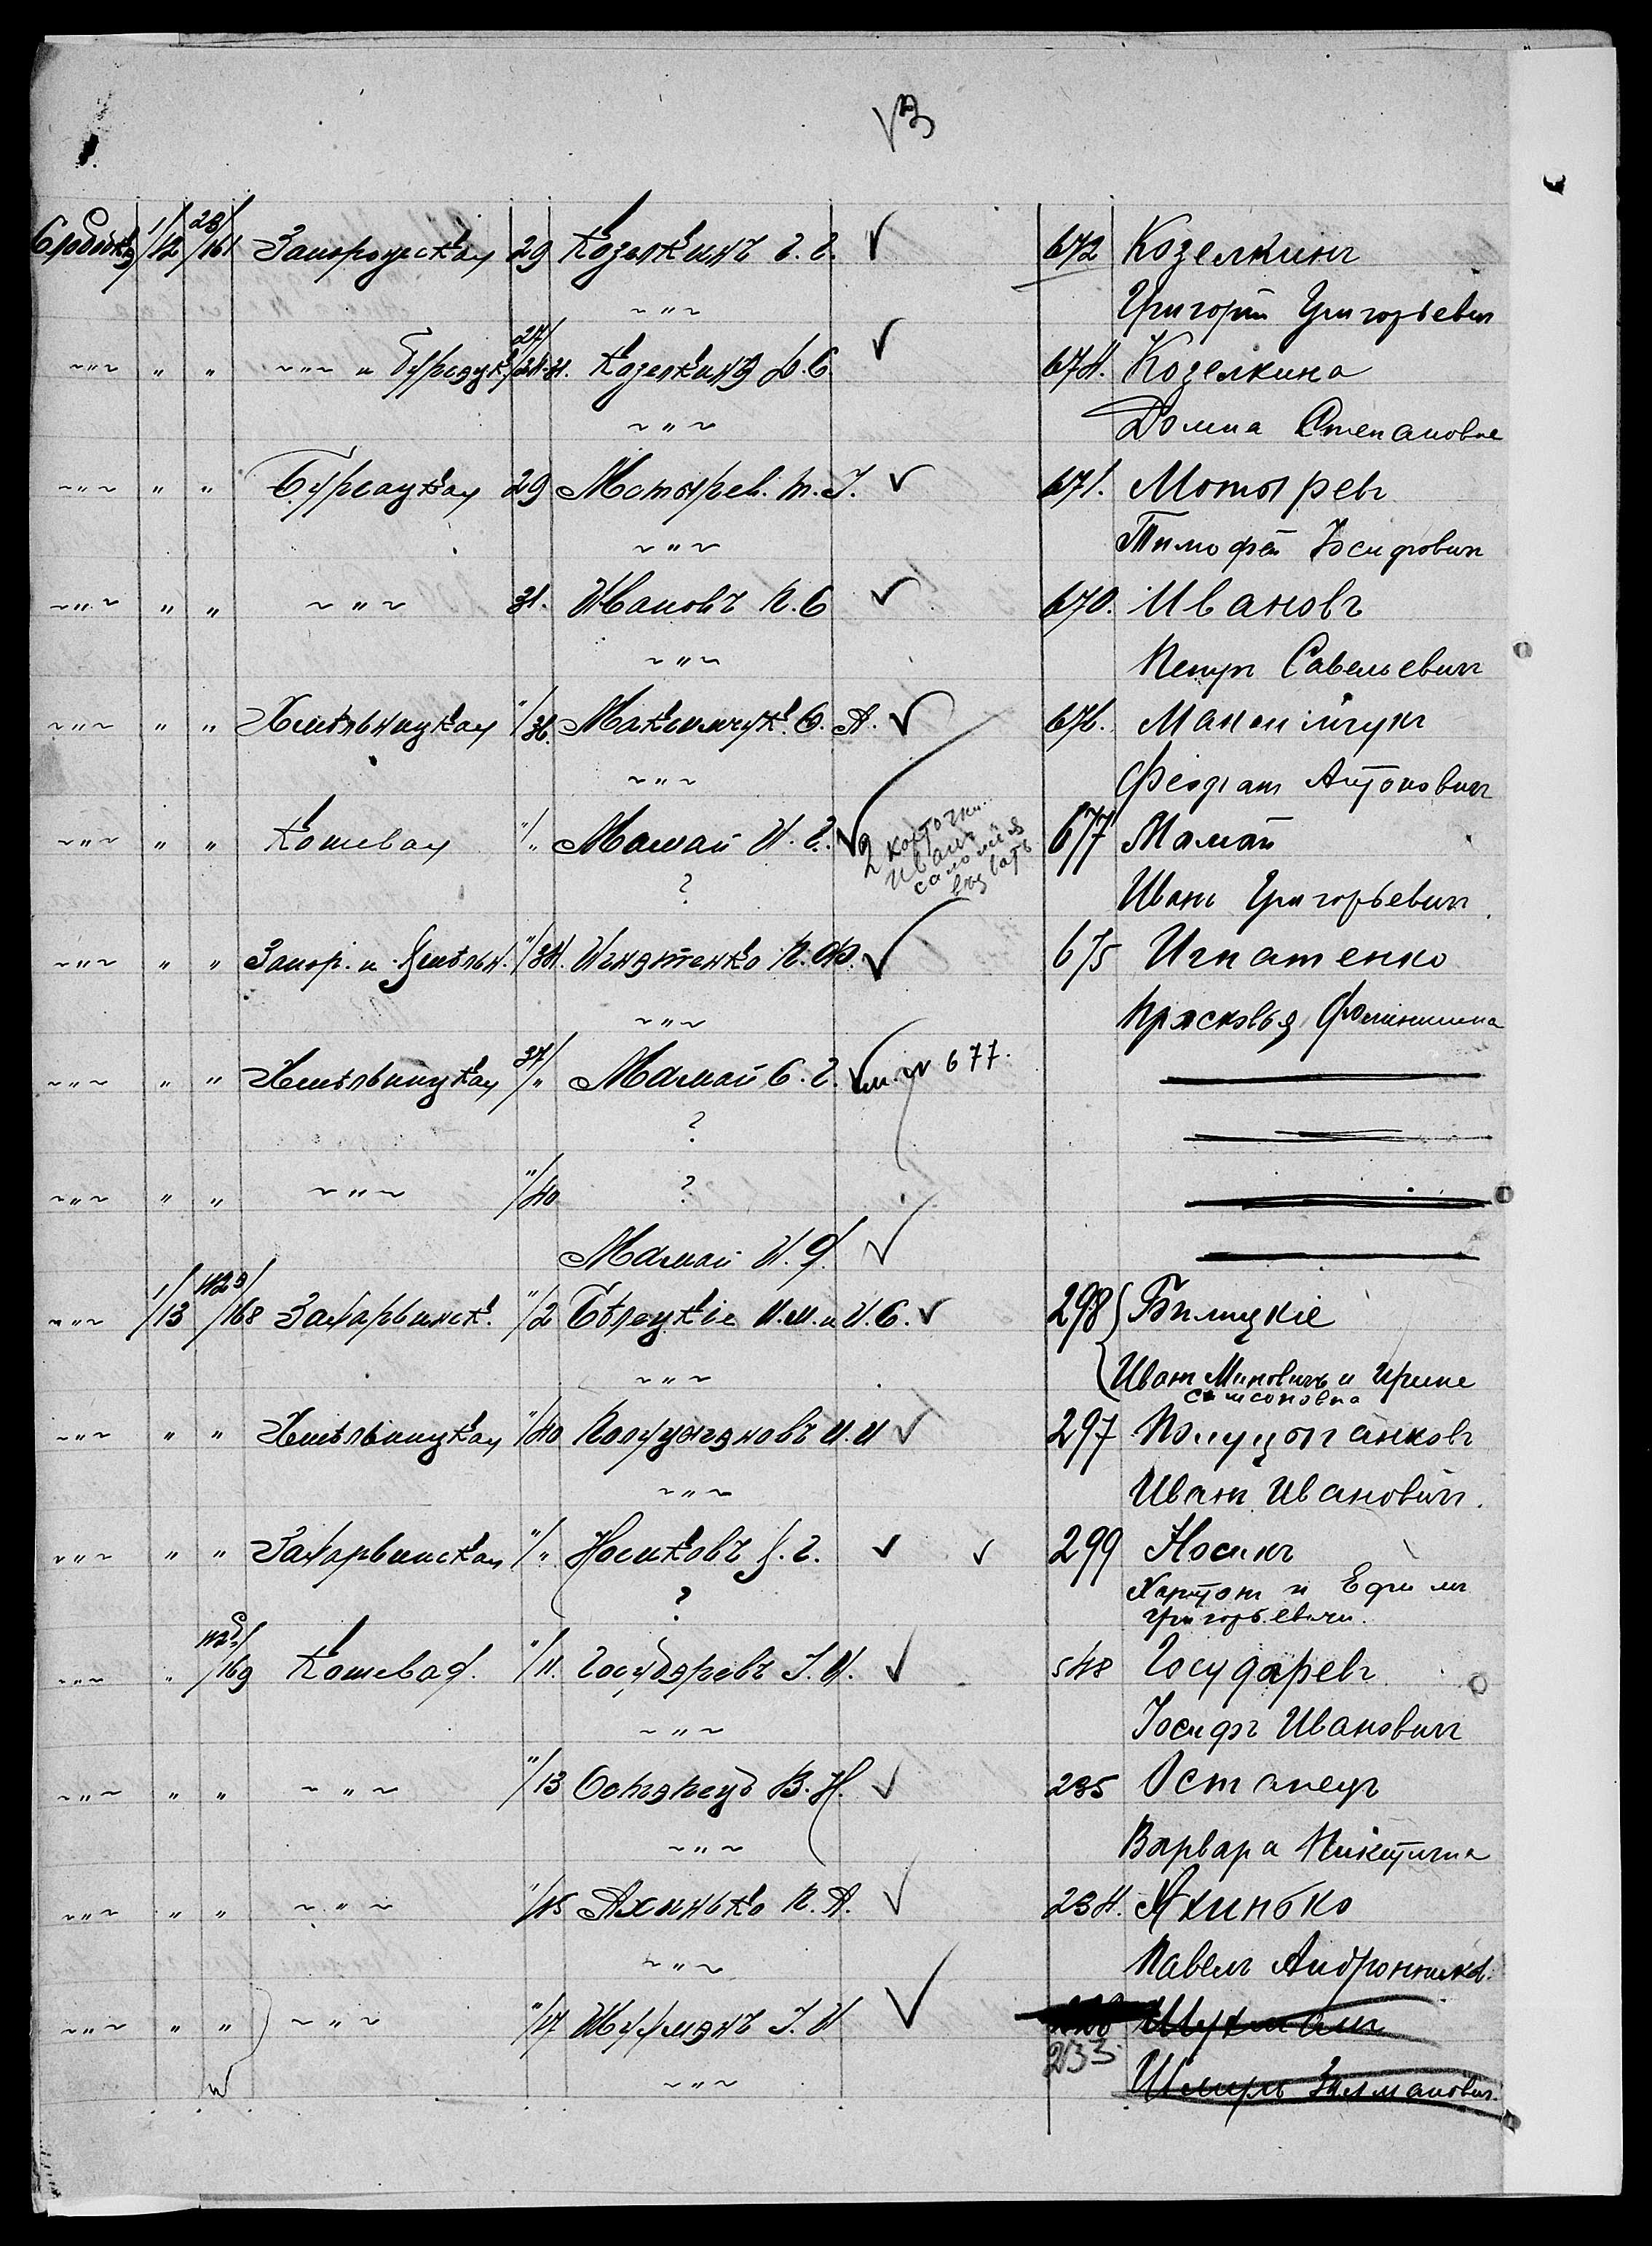 В
Слободк. 1/12 28/161 Запорожская 29 Козелкинъ Г. Г. 672 Козелкинъ
~"~ Григорій Григорьевич
~"~ " " ~"~ и Бурсацк. 27/24-31. Козелкина Д. С. 674. Козелкина
~"~ Домна Степановна
~"~ " " Бурсацкая 29 Мотырев. Т. І. 671. Мотыревъ
~"~ Тимофей Иосифович
~"~ " " ~"~ 31. Ивановъ П. С 670. Ивановъ
~"~ Петръ Савельевич
~"~ " " Хмѣльницкая "/36. Максимчук. Ѳ. А. 676. Максимчукъ
~"~ Феодрат Антонович
~"~ " " Кошевая "/" Мамай И. Г. 2 карточки Иван 677 Мамай
? Иванъ Григорьевич
~"~ " " Запор. и Хмѣльн. "/34. Игнатенко П. Ф. 675 Игнатенко
~"~ Прасковья Фоминишна
~"~ " " Хмѣльницкая 37/" Мамай С. Г. см. № 677.
?
~"~ " " ~"~ "/40 ?
Мамай И. Я.
~"~ 1/13 112Э/168 Захарьинск. "/2 Бѣлецкіе И. М. и И. С. 298 Билицкіе
~"~ Иван Минович и Ирина Самсоновна
~"~ " " Хмѣльницкая "/40 Полуцыгановъ И. И 297 Полуцыганковъ
~"~ Иван Иванович.
~"~ " " Захарьинская "/" Носиковъ Х. Г. 299 Носикъ
? Харитон и Ефим Григорьевичи.
~"~ " 112д/169 Кошевая. "/11. Государевъ І. И. 548 Государевъ
~"~ Іосифъ Иванович
~"~ " " ~"~ "/13 Остапецъ В. Н. 235 Остапецъ
~"~ Варвара Никитична
~"~ " " ~"~ "/15 Яхинько П. А. 234. Яхинько
~"~ Павелъ Андроников.
~"~ " " ~"~ "/17 Шухманъ І. И 233 Шухманъ
~"~ Шмуль Залманович.